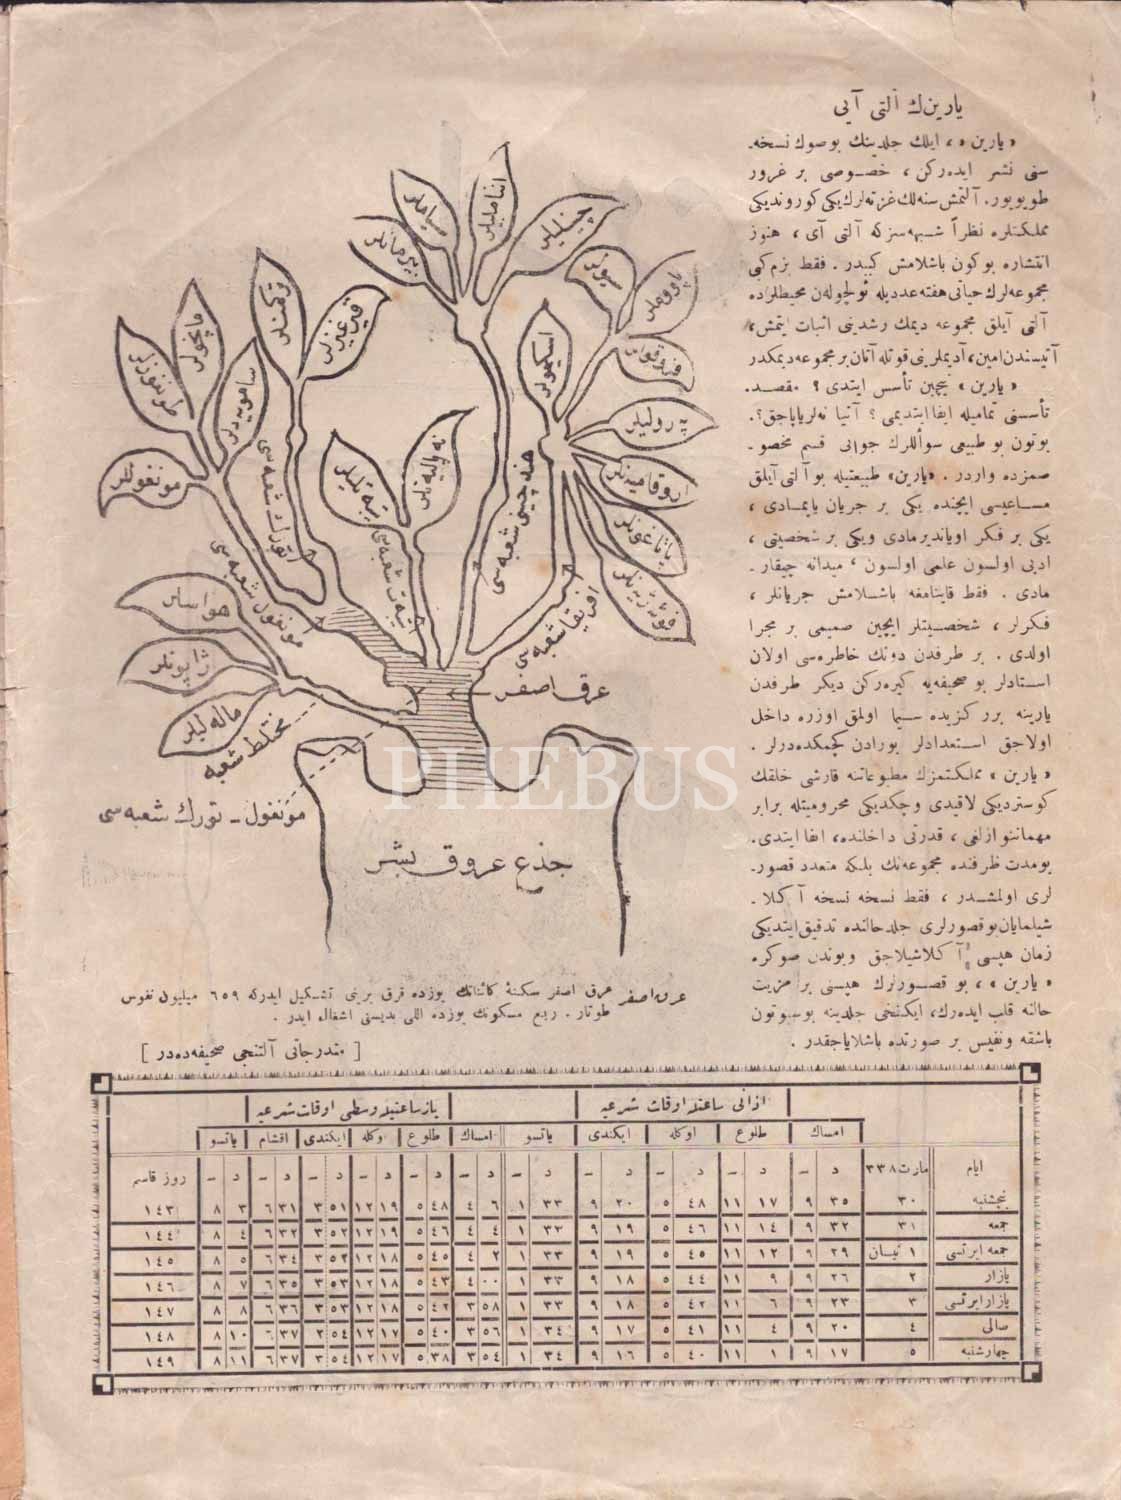 یارینك آلتی آیی
« یارین » ، ایلك جلدینك بو صوك نسخه‌ـ
سنی نشر ایده‌ركن ، خصوصی بر غرور
طویویور . آلتمش سنه‌لك غزته‌لرك یكی كوروندیكی
مملكتلره نظراً شبهه‌سز كه آلتی آی ، هنوز
انتشاره بوكون باشلامش كبیدر . فقط بزم كبی
مجموعه‌لرك حیاتی هفته عددیله ئولچولەن محیطلرده
آلتی آیلق مجموعه دیمك رشدینی اثبات ایتمش ،
آتیسندن امین ، آدیملرینی قوتله آتان بر مجموعه دیمكدر
« یارین » یچین تأسس ایتدی ؟ مقصد ـ
تأسسنی تمامیله ایفا ایتدیمی ؟ آتیا نه‌لر یاپاجق ؟.
بوتون بو طبیعی سؤاللرك جوابی قسم مخصو ـ
صمزده واردر . « یارین » طبیعتیله بو آلتی آیلق
مساعیسی ایچنده یكی بر جریان یاپمادی ،
یكی بر فكر اویاندیرمادی ویكی بر شخصیتی ،
ادبی اولسون علمی اولسون ، میدانه چیقار ـ
مادی . فقط قاینامغه باشلامش جریانلر ،
فكرلر ، شخصیتلر ایچین صمیمی بر مجرا
اولدی . بر طرفدن دونك خاطره‌سی اولان
استادلر بو صحیفه‌یه كیره‌ركن دیكر طرفدن
یارینه برر كزیده سیما اولمق اوزره داخل
اولاجق استعدادلر بورادن كچمكده‌درلر .
« یارین » مملكتمزك مطبوعاتنه قارشی خلقك
كوستردیكی لاقیدی وچكدیكی محرومیتله برابر
مهماننوازلغی ، قدرتی داخلنده ، ایفا ایتدی .
بو مدت ظرفنده مجموعه‌نك بلكه متعدد قصور ـ
لری اولمشدر ، فقط نسخه نسخه آكلا ـ
شیلمایان بو قصورلری جلد حالنده تدقیق ایتدیكی
زمان هپسی آكلاشیلاجق وبوندن صوكره
« یارین » ، بو قصورلرك هپسنی بر مزیت
حالنه قلب ایده‌رك ، ایكنجی جلدینه بوسبوتون
باشقه ونفیس بر صورتده باشلایاجقدر .
اننامیلیلر
سیاملر
بیرمانلر
چینلیلر
سیولر
پاووملر
اسكیمولر
پەرولیلر
پاتاغونلر
تركمنلر
قیرغیزلر
مانچولر
طونغوزلر
سامویەدلر
مونغوللر
تیبەتلیلر
نەپالیەنلر
هواسلر
ژاپونلر
مالەلیلر
تورك شعبه‌سی
مونغول شعبه‌سی
تیبەت شعبه‌سی
هندچینی شعبه‌سی
افریقا شعبه‌سی
عرق اصفر
مختلط شعبه
مونغول ـ تورك شعبه‌سی
جذع عروق بشر
عرق اصفر عرق اصفر سكنهٔ كائناتك یوزده قرق برینی تشكیل ایدركه ٦٥٩ میلیون نفوس
طوتار . ربع مسكونك یوزده اللی یدیسنی اشغال ایدر .
[ مندرجاتی آلتنجی صحیفه‌ده‌در ]
اذانی ساعتله اوقات شرعیه | یاز ساعتیله وسطی اوقات شرعیه
امساك | طلوع | اوكله | ایكندی | یاتسو | امساك | طلوع | اوكله | ایكندی | اقشام | یاتسو
ایام | مارت ٣٣٨ | د – | د – | د – | د – | د – | د – | د – | د – | د – | د – | د – | روز قاسم
پنجشنبه | ٣٠ | ٣٥ ٩ | ١٧ ١١ | ٤٨ ٥ | ٢٠ ٩ | ٣٣ ١ | ٦ ٤ | ٤٨ ٥ | ١٩ ١٢ | ٥١ ٣ | ٣١ ٦ | ٣ ٨ | ١٤٣
جمعه | ٣١ | ٣٢ ٩ | ١٤ ١١ | ٤٦ ٥ | ١٩ ٩ | ٣٢ ١ | ٤ ٤ | ٤٦ ٥ | ١٩ ١٢ | ٥٢ ٣ | ٣٢ ٦ | ٤ ٨ | ١٤٤
جمعه ایرتسی | ١ نیسان | ٢٩ ٩ | ١٢ ١١ | ٤٥ ٥ | ١٩ ٩ | ٣٣ ١ | ٢ ٤ | ٤٥ ٥ | ١٨ ١٢ | ٥٢ ٣ | ٣٤ ٦ | ٥ ٨ | ١٤٥
پازار | ٢ | ٢٦ ٩ | ٩ ١١ | ٤٤ ٥ | ١٨ ٩ | ٣٣ ١ | ٠٠ ٤ | ٤٣ ٥ | ١٨ ١٢ | ٥٣ ٣ | ٣٥ ٦ | ٧ ٨ | ١٤٦
پازار ایرتسی | ٣ | ٢٣ ٩ | ٦ ١١ | ٤٢ ٥ | ١٨ ٩ | ٣٣ ١ | ٥٨ ٣ | ٤٢ ٥ | ١٨ ١٢ | ٥٣ ٣ | ٣٦ ٦ | ٨ ٨ | ١٤٧
صالی | ٤ | ٢٠ ٩ | ٤ ١١ | ٤١ ٥ | ١٧ ٩ | ٣٤ ١ | ٥٦ ٣ | ٤٠ ٥ | ١٧ ١٢ | ٥٤ ٣ | ٣٧ ٦ | ١٠ ٨ | ١٤٨
چهارشنبه | ٥ | ١٧ ٩ | ١ ١١ | ٤٠ ٥ | ١٦ ٩ | ٣٤ ١ | ٥٤ ٣ | ٣٨ ٥ | ١٧ ١٢ | ٥٤ ٣ | ٣٧ ٦ | ١١ ٨ | ١٤٩
PHEBUS